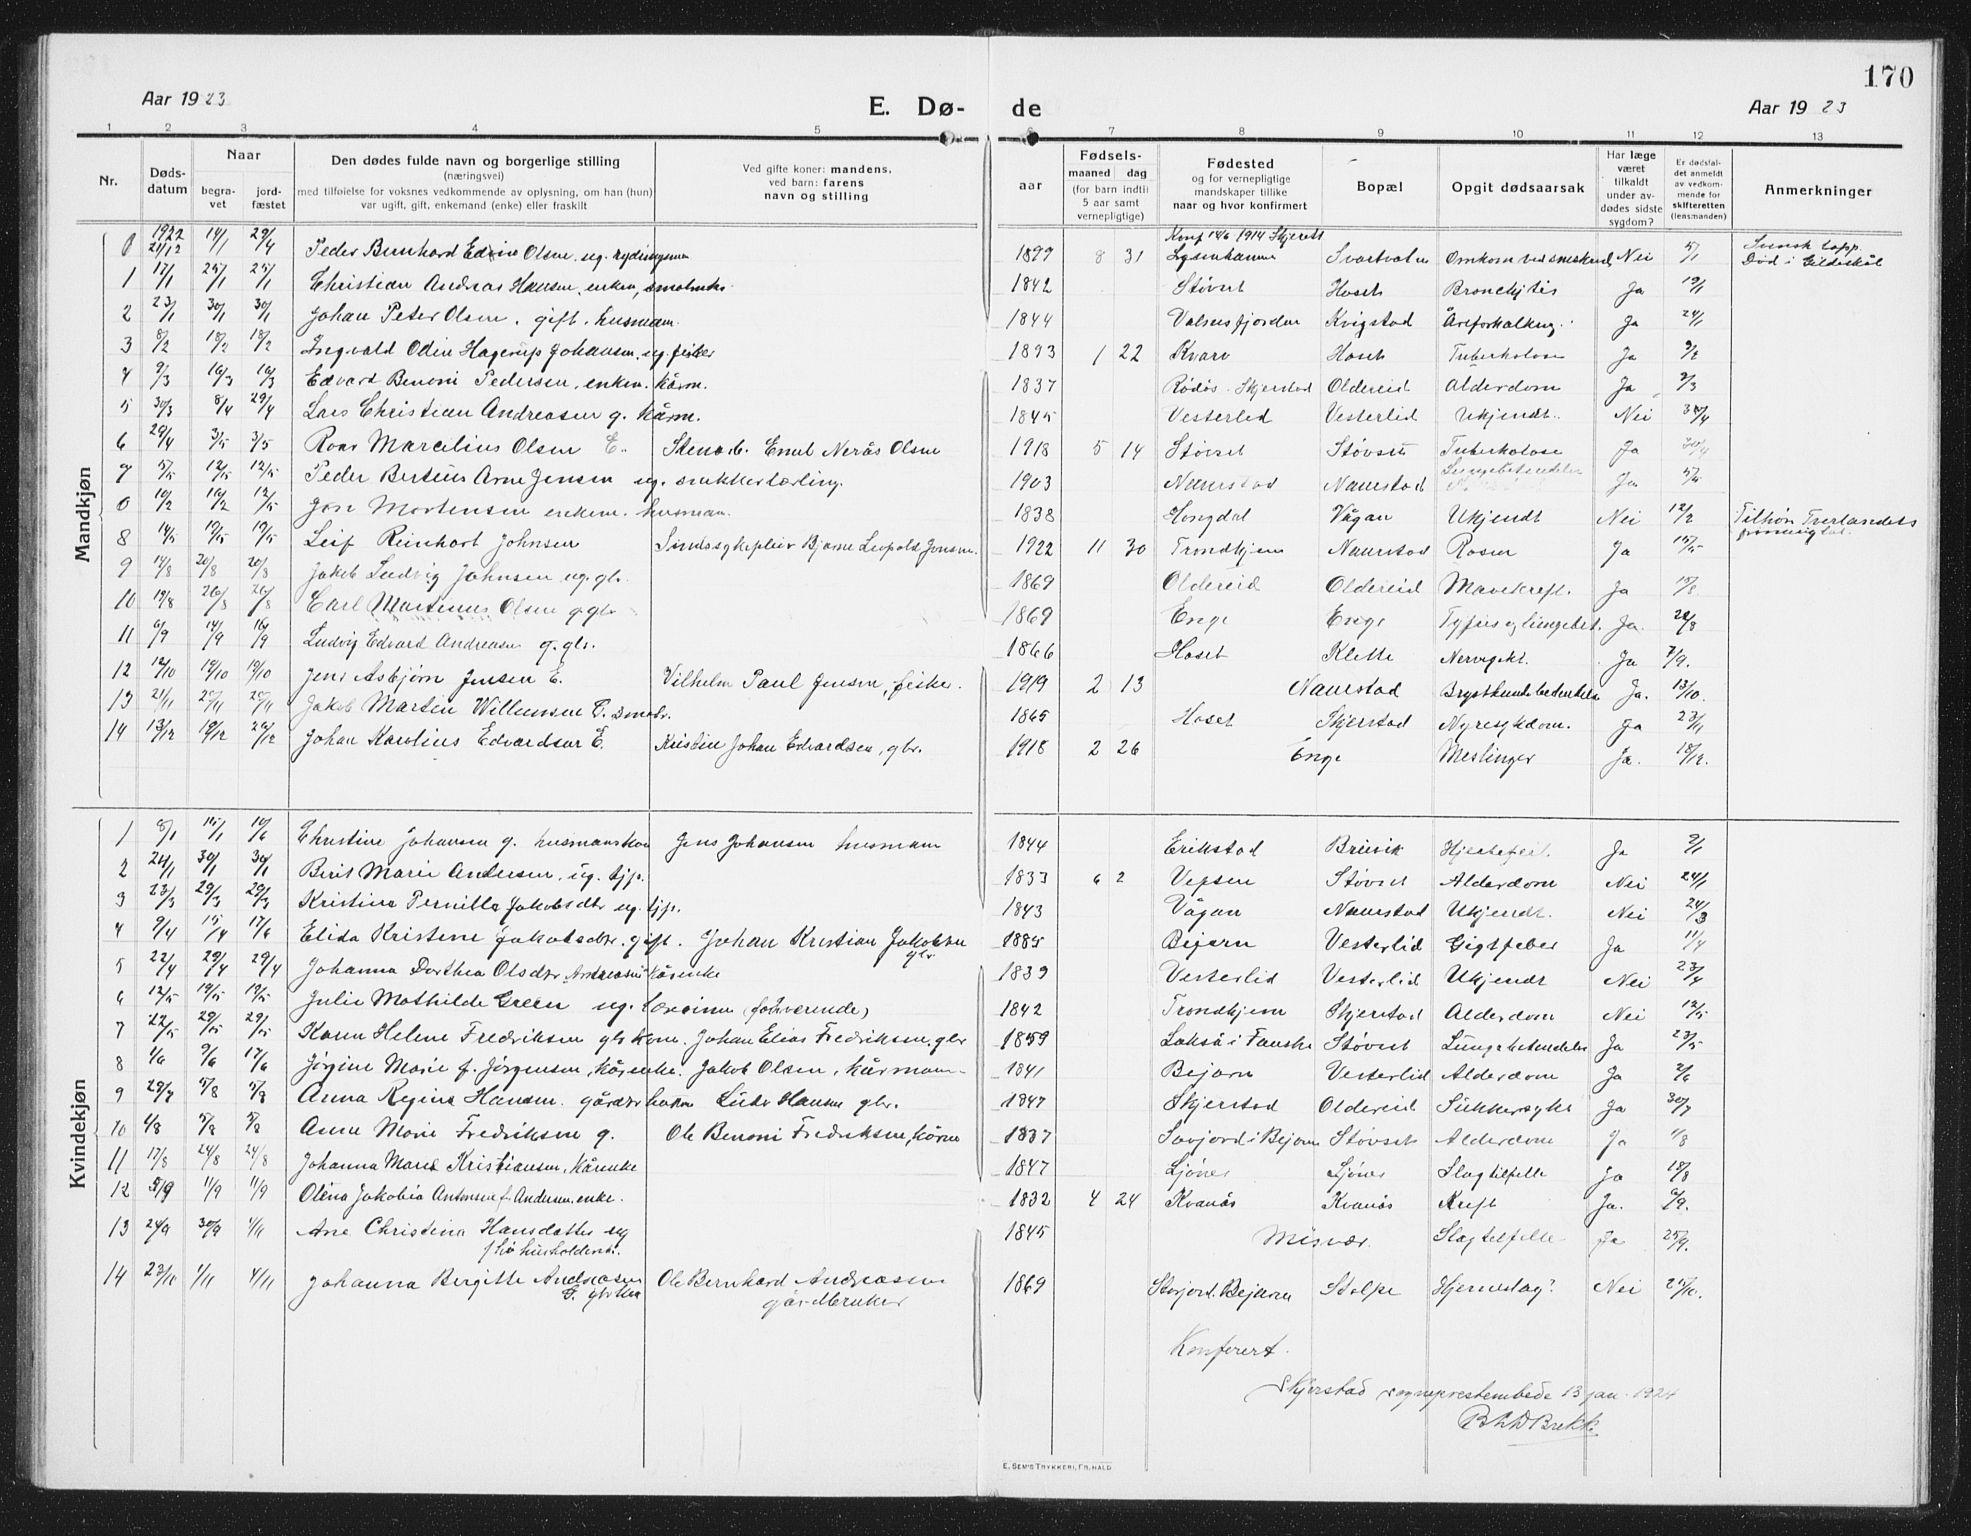 170
Aar 1923 E. Dø- de Aar 1923
1 2 3 4 5 6 7 8 9 10 11 12 13
Nr. Døds-datum Naar begra-vet jord-fæstet Den dødes fulde navn og borgerlige stilling (næringsvei) med tilføielse for voksnes vedkommende av oplysning, om han (hun) var ugift, gift, enkemand (enke) eller fraskilt Ved gifte koner: mandens, ved barn: farens navn og stilling aar Fødsels- maaned dag (for barn indtil 5 aar samt vernepligtige) Fødested og for vernepligtige mandskaper tillike naar og hvor konfirmert Bopæl Opgit dødsaarsak Har læge været tilkaldt under av-dødes sidste sygdom? Er dødsfal-det anmeldt av vedkom-mende for skifteretten (lensmanden) Anmerkninger
Mandkjøn
0 1922 21/12 14/1 29/4 Peder Bernhard Edvin Olsen, ug. rydningsm 1899 8 31 Konf 14/6 1914 Skjerst Svartvatn Omkom ved sneskred Nei 5/1 Svensk lapp. Død i Gildeskål
1 17/1 25/1 25/1 Christian Andreas Hansen, enkem, småbruks. 1842 Støvset Hoset Bronchjtis Ja 19/1
2 23/1 30/1 30/1 Johan Peter Olsen, gift, husmam. 1844 Valnesfjorden Kvigstad Åreforkalkng. Ja 24/1
3 8/2 18/2 18/2 Ingvald Odin Hagerup Johansen, ug. fisker 1893 1 22 Kvarv Hoset Tuberkolose Ja 9/2
4 9/3 16/3 16/3 Edvard Benoni Pedersen, enkem. kårm. 1837 Rødøs. Skjerstad Oldereid Alderdom Ja 9/3
5 30/3 8/4 29/4 Lars Christian Andreasen g. kårm. 1845 Vesterlid Vesterlid Ukjendt. Nei
6 29/4 3/5 3/5 Roar Marcelius Olsen E. Stenarb. Emil Nerås Olsen 1918 5 14 Støvset Støvset Tuberkolose Ja 30/4
7 5/5 12/5 12/5 Peder Bertius Arne Jensen ug. snekkerlærling. 1903 Naurstad Naurstad Lungebetendelse Ja 5/5
0 10/2 16/2 12/5 Jon Mortensen enkem. husmam. 1838 Hongdal Vågan Ukjendt Nei 12/2 Tilhør Tverlandets
8 14/5 19/5 19/5 Leif Reinhart Johnsen Sindssykepleier Bjarne Leopold Jensen 1922 11 30 Trondhjem Naurstad Rosen Ja 15/5
9 14/8 20/8 20/8 Jakob Ludvig Johnsen ug. gbr. 1869 Oldereid Oldereid Mavekreft. Ja 15/8
10 19/8 26/8 26/8 Carl Martinus Olsen g. gbr 1869 Enge Enge Tyfus og lungebet. Ja. 22/8
11 6/9 14/9 16/9 Ludvig Edvard Andreasen g. gbr. 1866 Hoset Klette Nervegikt. Ja 7/9.
12 12/10 19/10 19/10 Jens Asbjørn Jensen E. Vilhelm Paul Jensen, fisker. 1919 2 13 Naurstad Brysthindebetendelse Ja. 13/10.
13 21/11 29/11 29/11 Jakob Martin Willumsen E. småbr. 1865 Hoset Skjerstad Nyresykdom. Ja 23/11
14 13/12 19/12 20/12 Johan Karolius Edvardsen E. Kristin Johan Edvardsen, gbr. 1918 2 26 Enge Meslinger Ja. 18/12.
Kvindekjøn
1 8/1 15/1 10/6 Christine Johansen g. husmanskone Jens Johansen husmam 1844 Erikstad Breivik Hjertefeil. Ja 9/1
2 24/1 30/1 30/1 Berit Marie Andersen, ug. tjp. 1833 6 2 Vefsen Støvset Alderdom Nei 24/1
3 23/3 29/3 29/3 Kristina Pernilla Jakobsdtr ug. tjp. 1843 Vågan Naurstad Ukjendt. Nei 24/3
4 9/4 15/4 17/6 Elida Kristine Jakobsdtr. gift. Johan Kristian Jakobsen gbr 1885 Bejarn Vesterlid Gigtfeber Ja 11/4
5 22/4 29/4 29/4 Johanna Dorthea Olsdtr Andreasen kårenke 1839 Vesterlid Vesterlid Ukjendt Nei 23/4
6 12/5 19/5 19/5 Julie Mathilde Green ug. lærerinne (forhverende) 1842 Trondhjem Skjerstad Alderdom Nei 12/5
7 22/5 29/5 29/5 Karen Helene Fredriksen gbrkone. Johan Elias Fredriksen, gbr 1859 Lakså i Fauske Støvset Lungebetendelse Ja 23/5
8 1/6 9/6 17/6 Jørgine Marie f. Jørgensen, kårenke. Jakob Olsen, kårmam 1841 Bejarn Vesterlid Alderdom Ja 2/6
9 29/7 5/8 5/8 Anna Regina Hansen. gårdbrkone Ludv Hansen gbr. 1847 Skjerstad Oldereid Sukkersyke Ja 30/7
10 1/8 5/8 5/8 Anne Marie Fredriksen g. Ole Benoni Fredriksen, kårm 1837 Støvset Alderdom Ja 1/8
11 17/8 24/8 24/8 Johanna Marie Kristiansen, kårenke 1847 Ljønes Ljønes Slagtilfelle Ja 18/8
12 5/9 11/9 11/9 Olena Jakobia Antonsen f. Andersen, enke. 1832 4 24 Kvanås Kvanås Kreft Ja. 6/9.
13 24/9 30/9 4/11 Ane Christina Hansdatter ug f hv husholdersk. 1845 Misvær Slagtilfelle Ja 25/9.
14 23/10 1/11 4/11 Johanna Bergitte Andreasen E. gbrkone Ole Bernhard Andreassen gårdbruker 1869 Storjord. Bejarn Stolpe Hjerneslag? Nei 25/10.
Konferert.
Skjerstad sogneprestembede 13 jan. 1924
Brekke
E. SEM'S TRYKKERI, FR.HALD